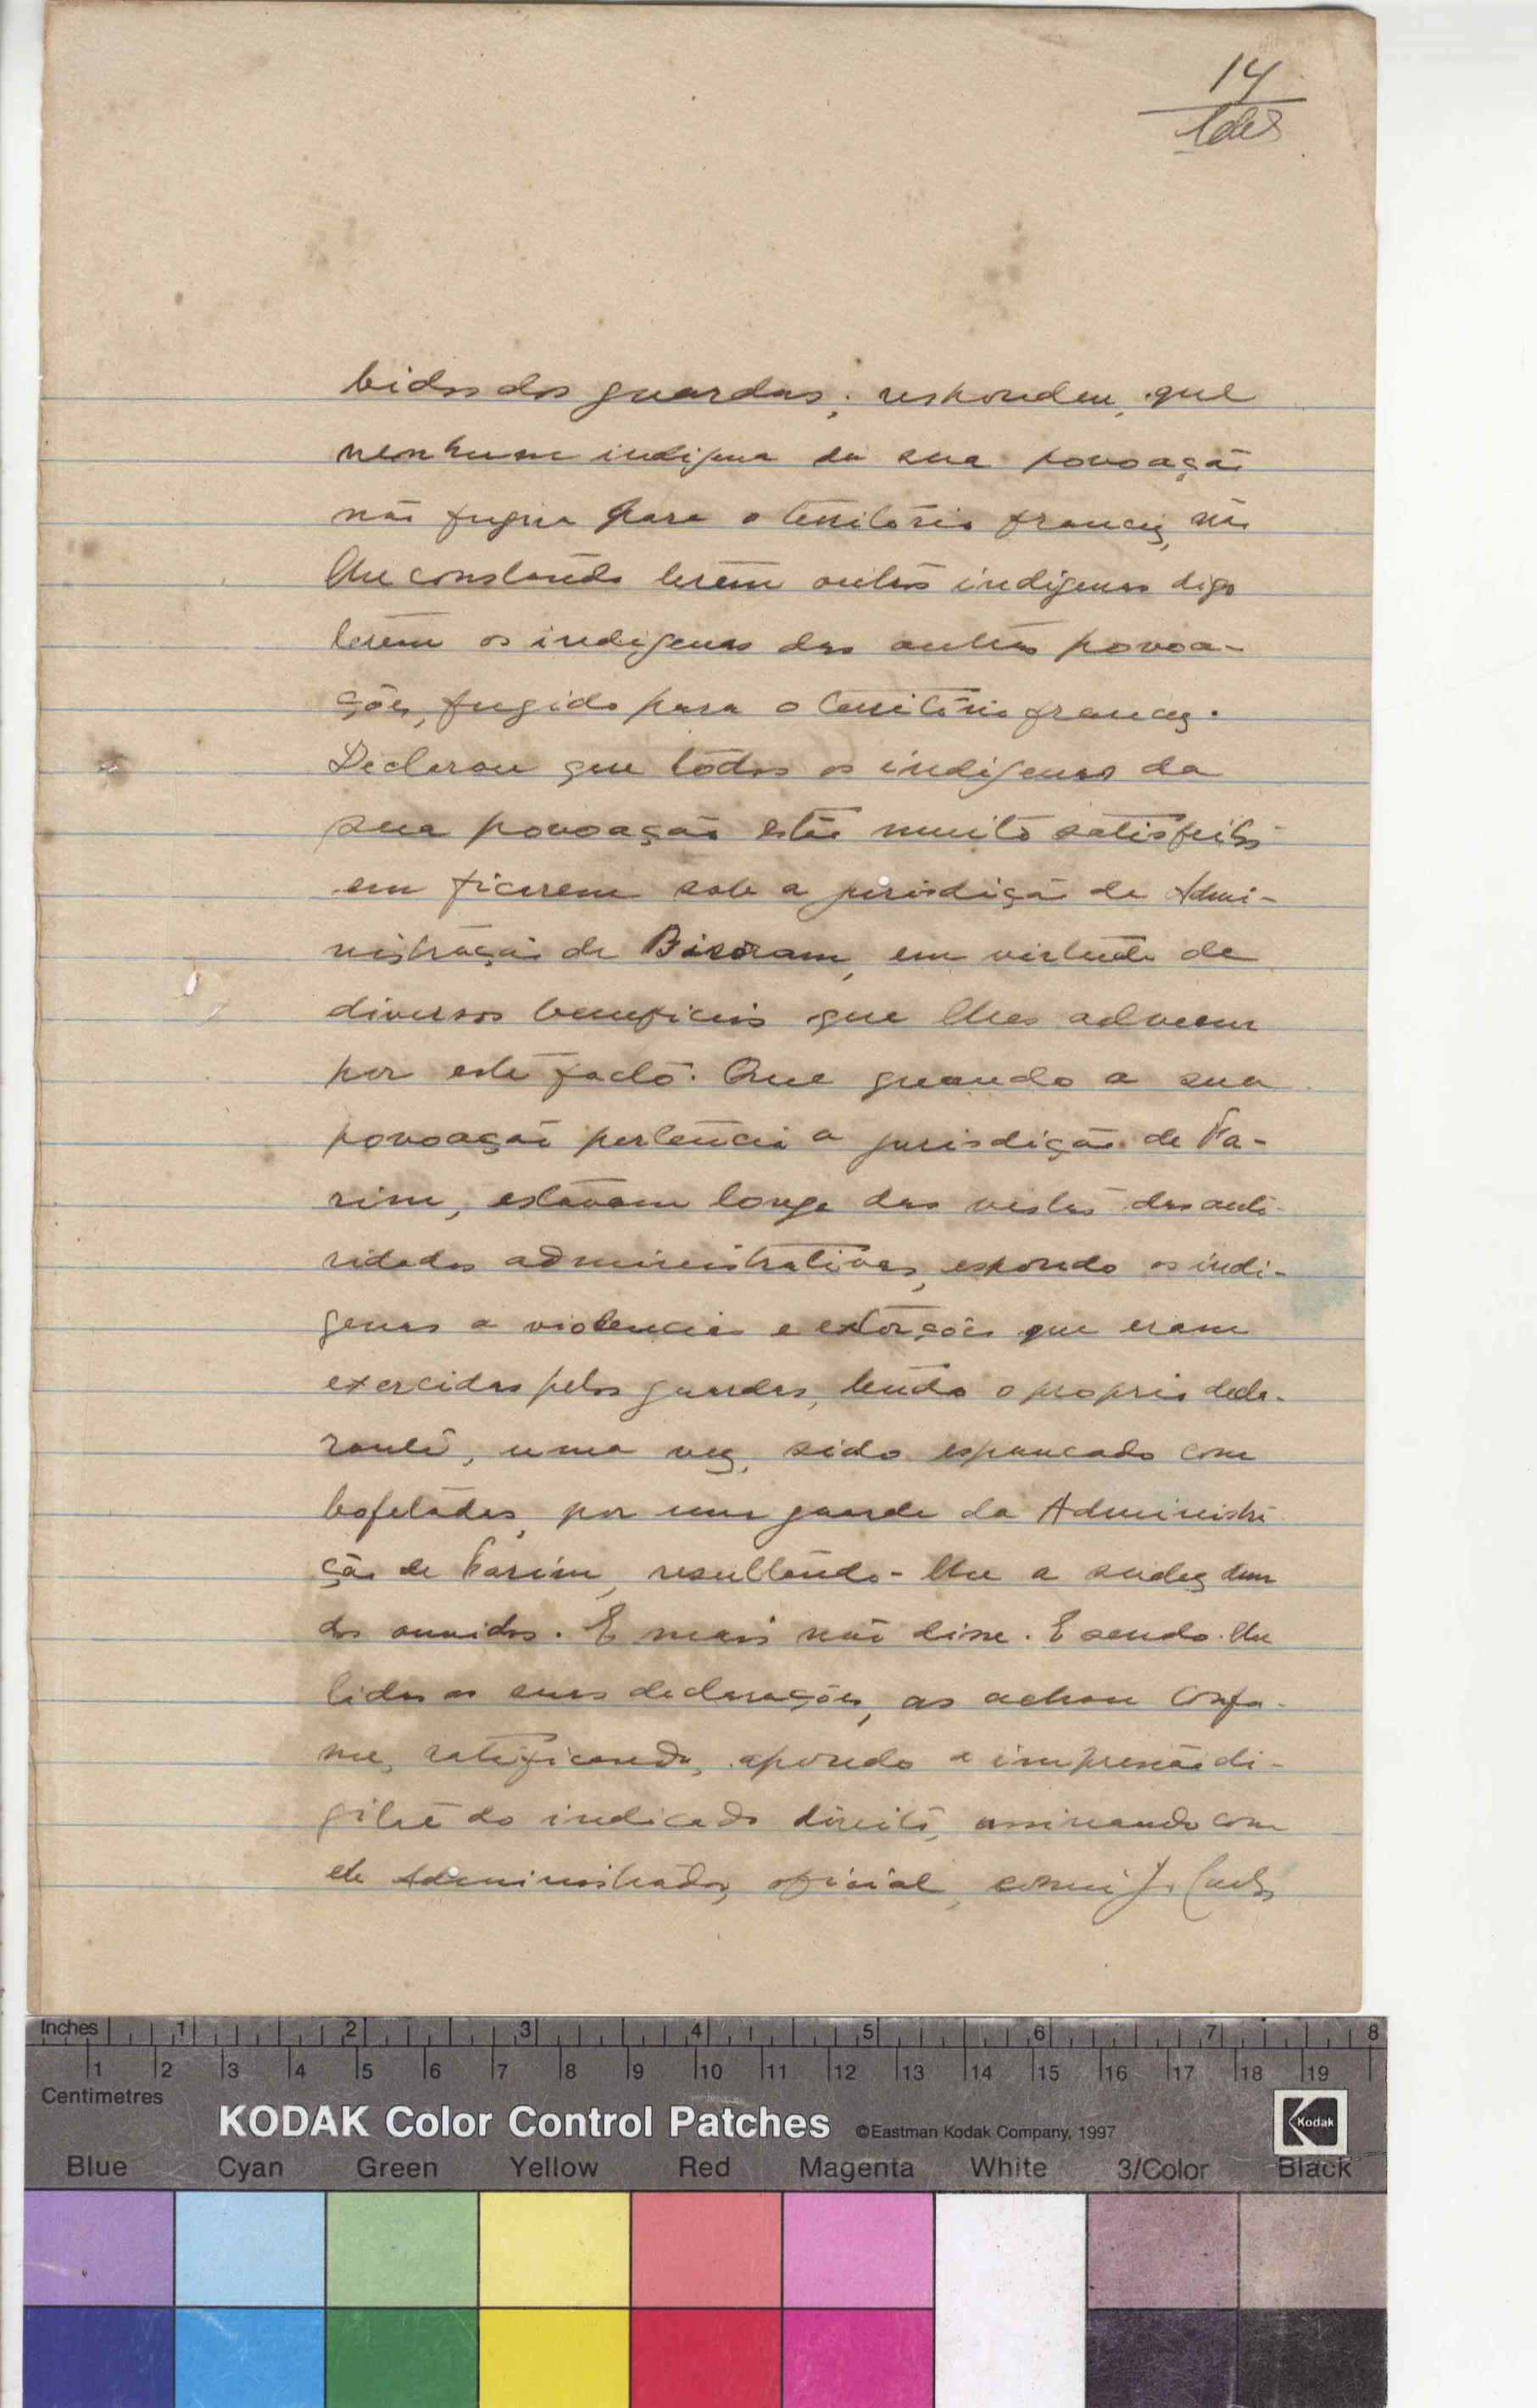 14
bidos dos guardas; respondeu, que
nenhum indigena da sua povoação
não fugira para o território francez, não
lhe constando terem outros indigenas digo
terem os indigenas das outras povoa-
ções, fugido para o território francez.
Declarou que todos os indigenas da
sua povoação estão muito satisfeitos
em ficarem sob a jurisdição da Admi-
nistração de Bissoram, em virtude de
diversos beneficios que lhes advem
por este facto. Que quando a sua
povoação pertencia a jurisdição de Fa-
rim, estavam longe das vistas das auto-
ridades administrativas, expondo os indi-
genas a violencias e extorções que eram
exercidas pelos guardas, tendo o proprio decla-
rante, uma vez, sido espancado com
bofetadas, por um guarda da Administra
ção de Farim, resultando-lhe a surdez dum
dos ouvidos. E mais não disse. E sendo-lhe
lidas as suas declarações, as achou confor-
me, ratificando, apondo a impressão di-
gital do indicado direito, assinando com
ele Administrador, oficial,
Inches 1 2 3 4 5 6 7 8
1 2 3 4 5 6 7 8 9 10 11 12 13 14 15 16 17 18 19
Centimetres
KODAK Color Control Patches ©Eastman Kodak Company, 1997 Kodak
Blue Cyan Green Yellow Red Magenta White 3/Color Black